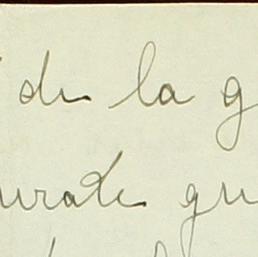 du la g
urate qu